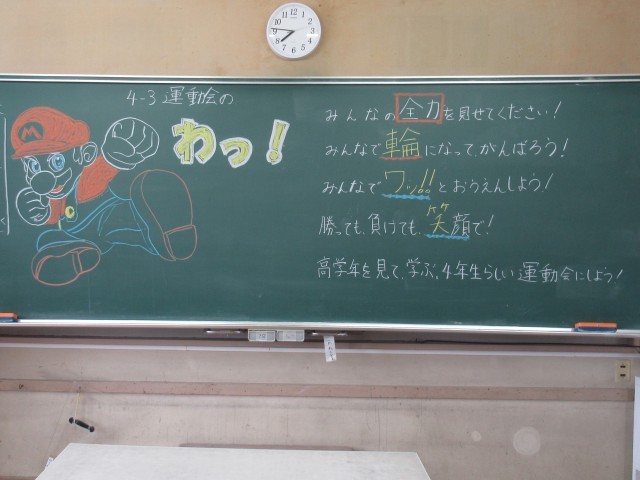 4-3 運動会の
わっ!
みんなの全力を見せてください!
みんなで輪になって、がんばろう!
みんなでワッ!!とおうえんしよう!
勝っても、負けても、笑顔で!
高学年を見て、学ぶ。4年生らしい運動会にしよう!
M
12
1
2
3
4
5
6
7
8
9
10
11